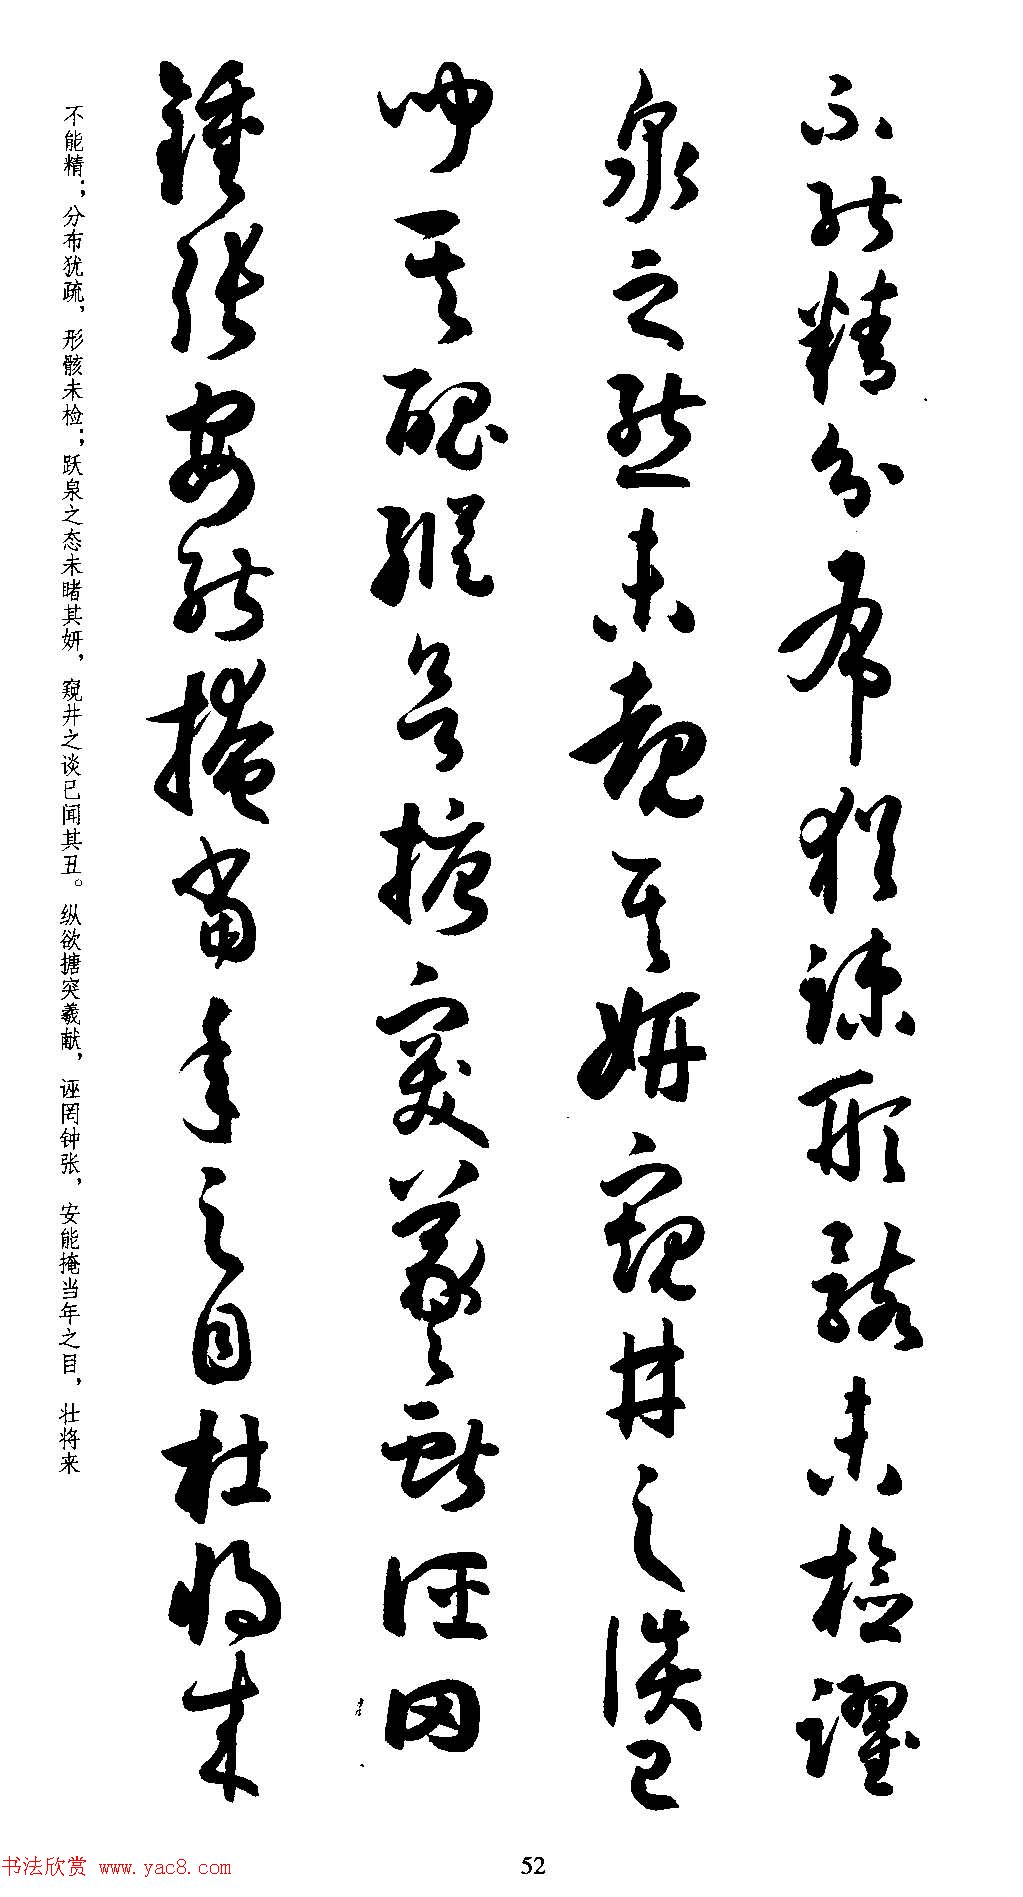 不能精分布猶疎形骸未檢躍
泉之態未覩其妍窺井之談已
聞其醜縱欲搪突羲獻誣罔
鍾張安能掩當年之目杜將來
不能精；分布犹疏，形骸未检；跃泉之态未睹其妍，窥井之谈已闻其丑。纵欲搪突羲献，诬罔钟张，安能掩当年之目，壮将来
书法欣赏 www.yac8.com
52